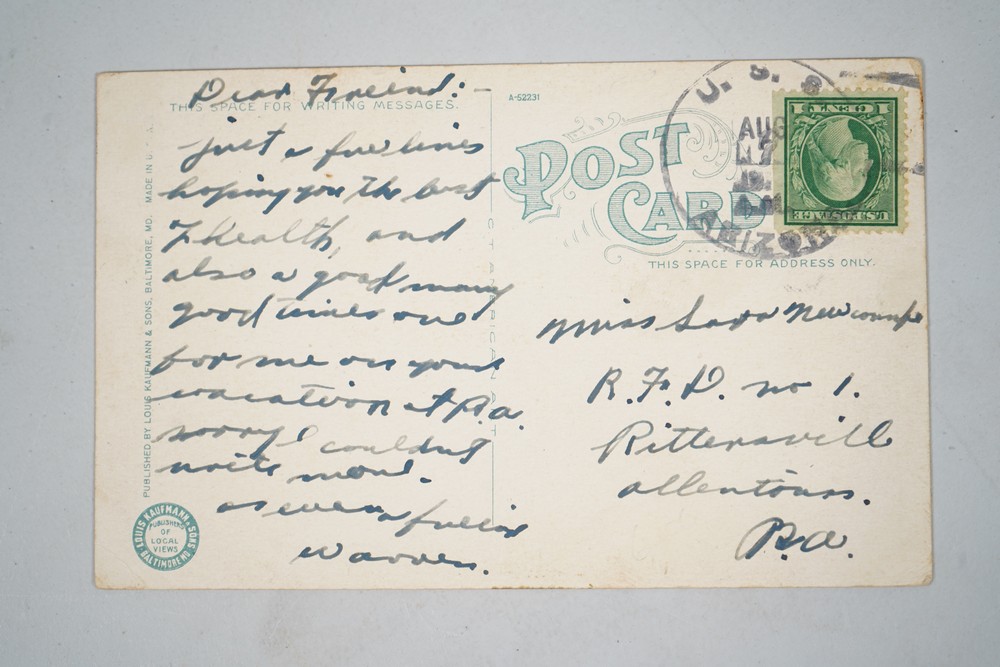 Dear Freeind:
THIS SPACE FOR WRITING MESSAGES.
just a few lines
hoping you the best
of health, and
also a good many
good times one
for me on your
vacation at Pa.
sorry I couldnt
write more.
as ever a freind
Warren.
PUBLISHED BY LOUIS KAUFMANN & SONS, BALTIMORE, MD. MADE IN U.
LOUIS KAUFMANN & SONS BALTIMORE MD.
PUBLISHERS
OF
LOCAL
VIEWS
A-52231
POST
CARD
THIS SPACE FOR ADDRESS ONLY.
U. S. S
AUG
ARIZONA
U.S. POSTAGE
1 CENT 1
Miss Sara Newcomer
R.F.D. no 1.
Rittersvill
allentown.
Pa.